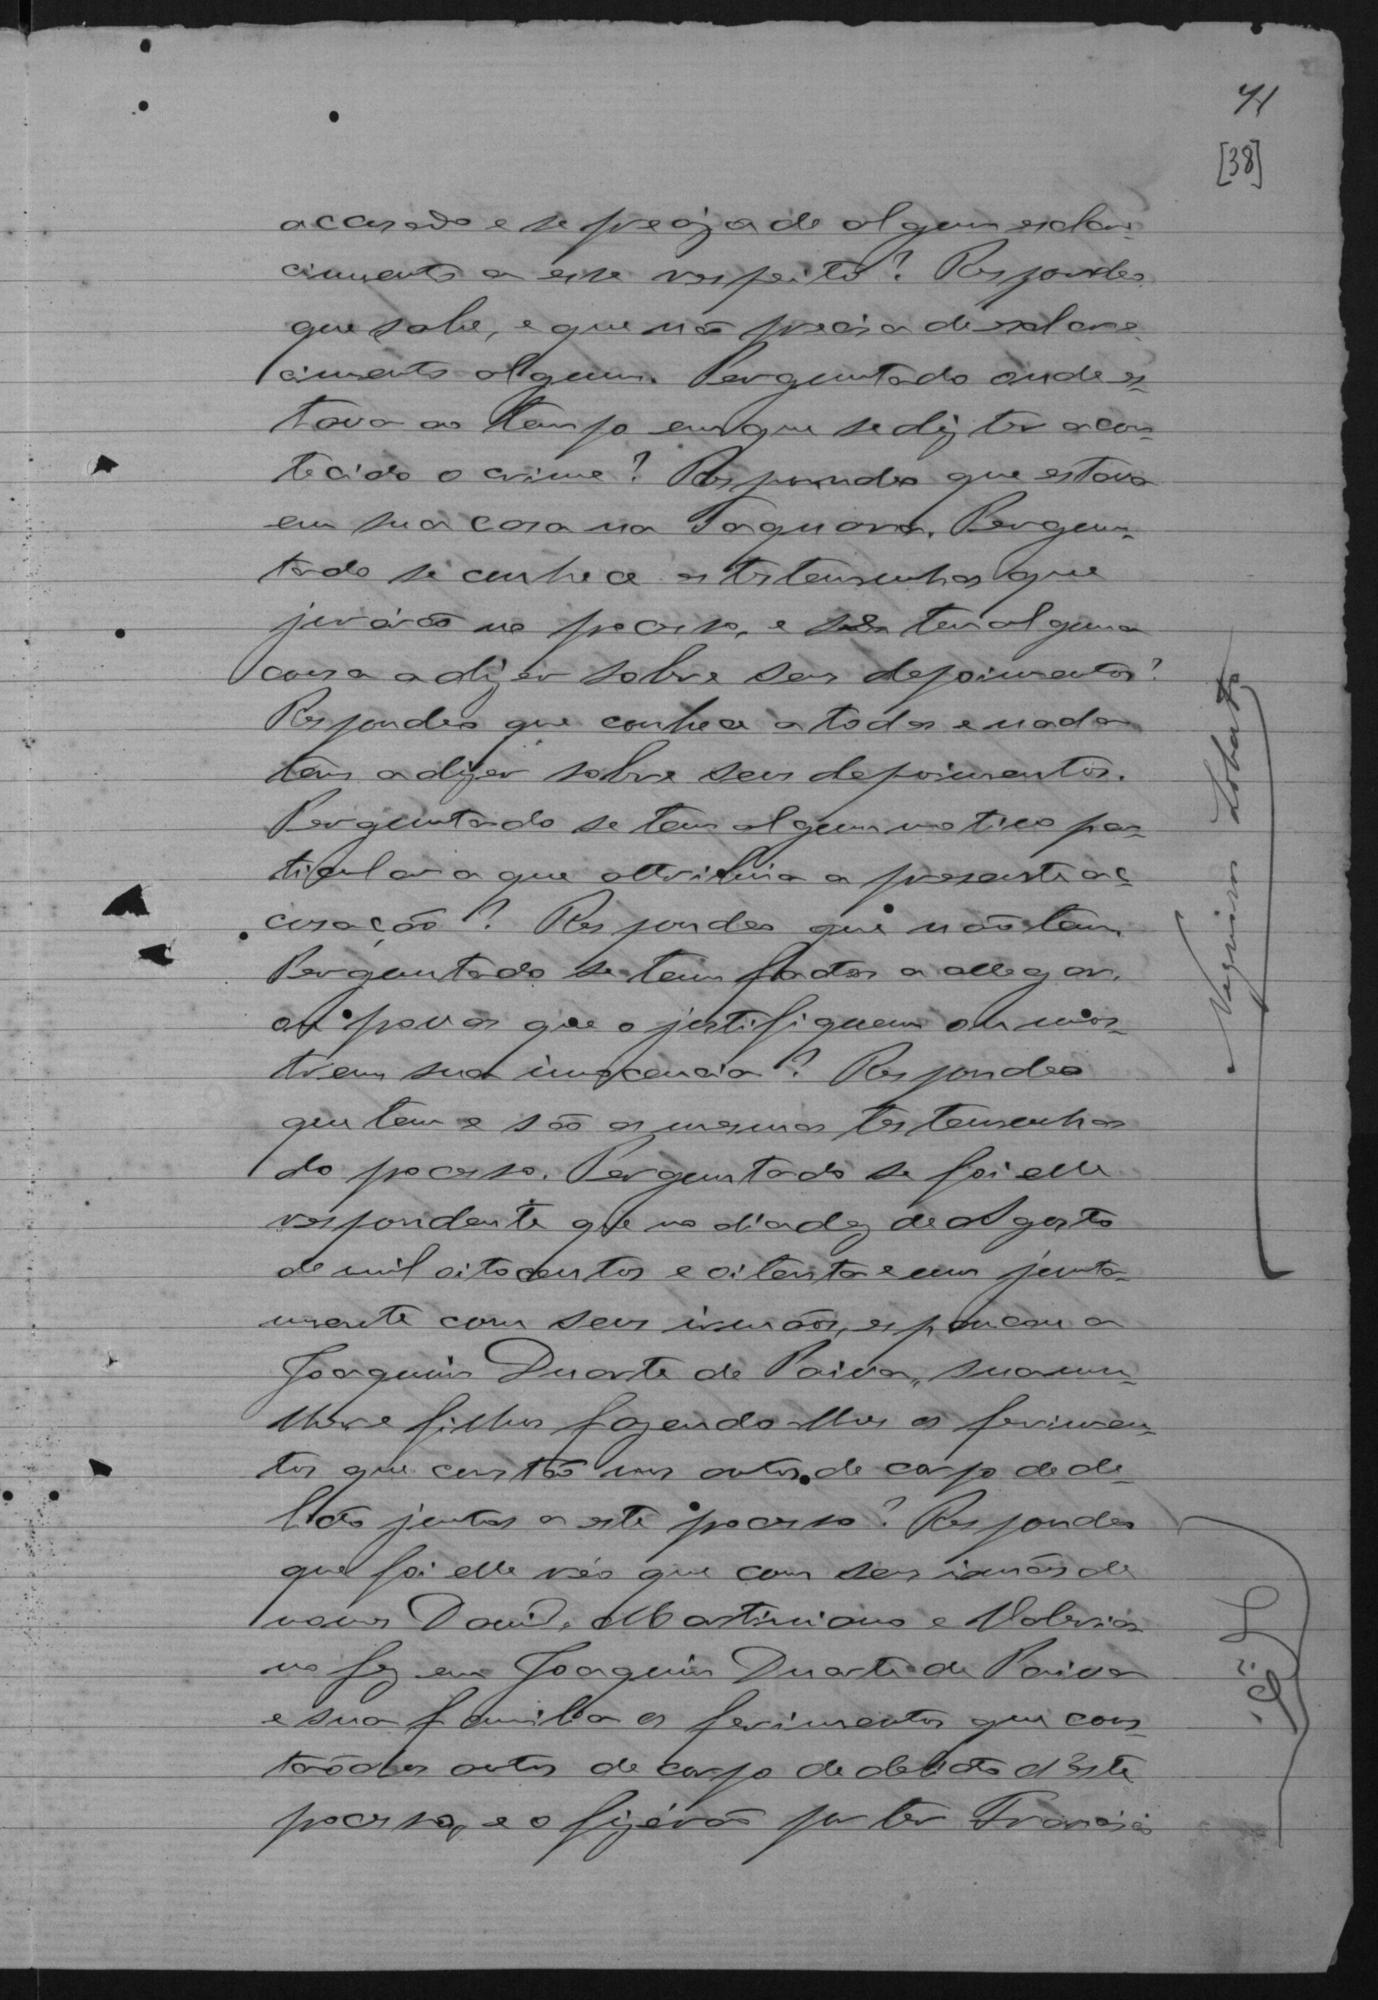 41
[38]
accusado e se preciza de algum esclare-
cimento a esse respeito? Respondeo
que sabe, e que não precisa de esclare-
cimento algum. Perguntado onde es-
tava ao tempo em que se diz ter acon-
tecido o crime? Respondeo que estava
em sua casa na Taquara. Pergun-
tado se conhece as testemunhas que
jurárão no pocesso, e se tem alguma
cousa a dizer sobre seus depoimentos?
Respondeo que conhece a todas e nada
tem a dizer sobre seus depoimentos.
Perguntado se tem algum motivo par-
ticular a que attribua a presente ac-
cusação? Respondeo que não tem.
Perguntado se tem factos a allegar,
ou povas que o justifiquem ou mos-
trem sua innocencia? Respondeo
que tem e são as mesmas testemunhas
do pocesso. Perguntado se foi elle
respondente que no dia dez de Agosto
de mil oitocentos e oitenta e um junta-
mente com seus irmãos, espancou a
Joaquim Duarte de Paiva, sua mu-
lher e filhos fazendo-lhes os ferimen-
tos que constão nos autos de corpo de de-
licto juntos a este pocesso? Respondeo
que foi elle réo que com seus irmãos de
nomes David, Martiniano e Valeria-
no fez em Joaquim Duarte de Paiva
e sua familia os ferimentos que cons-
tão dos autos de corpo de delicto d'este
pocesso, e o fizérão por ter Francisco
Lobato